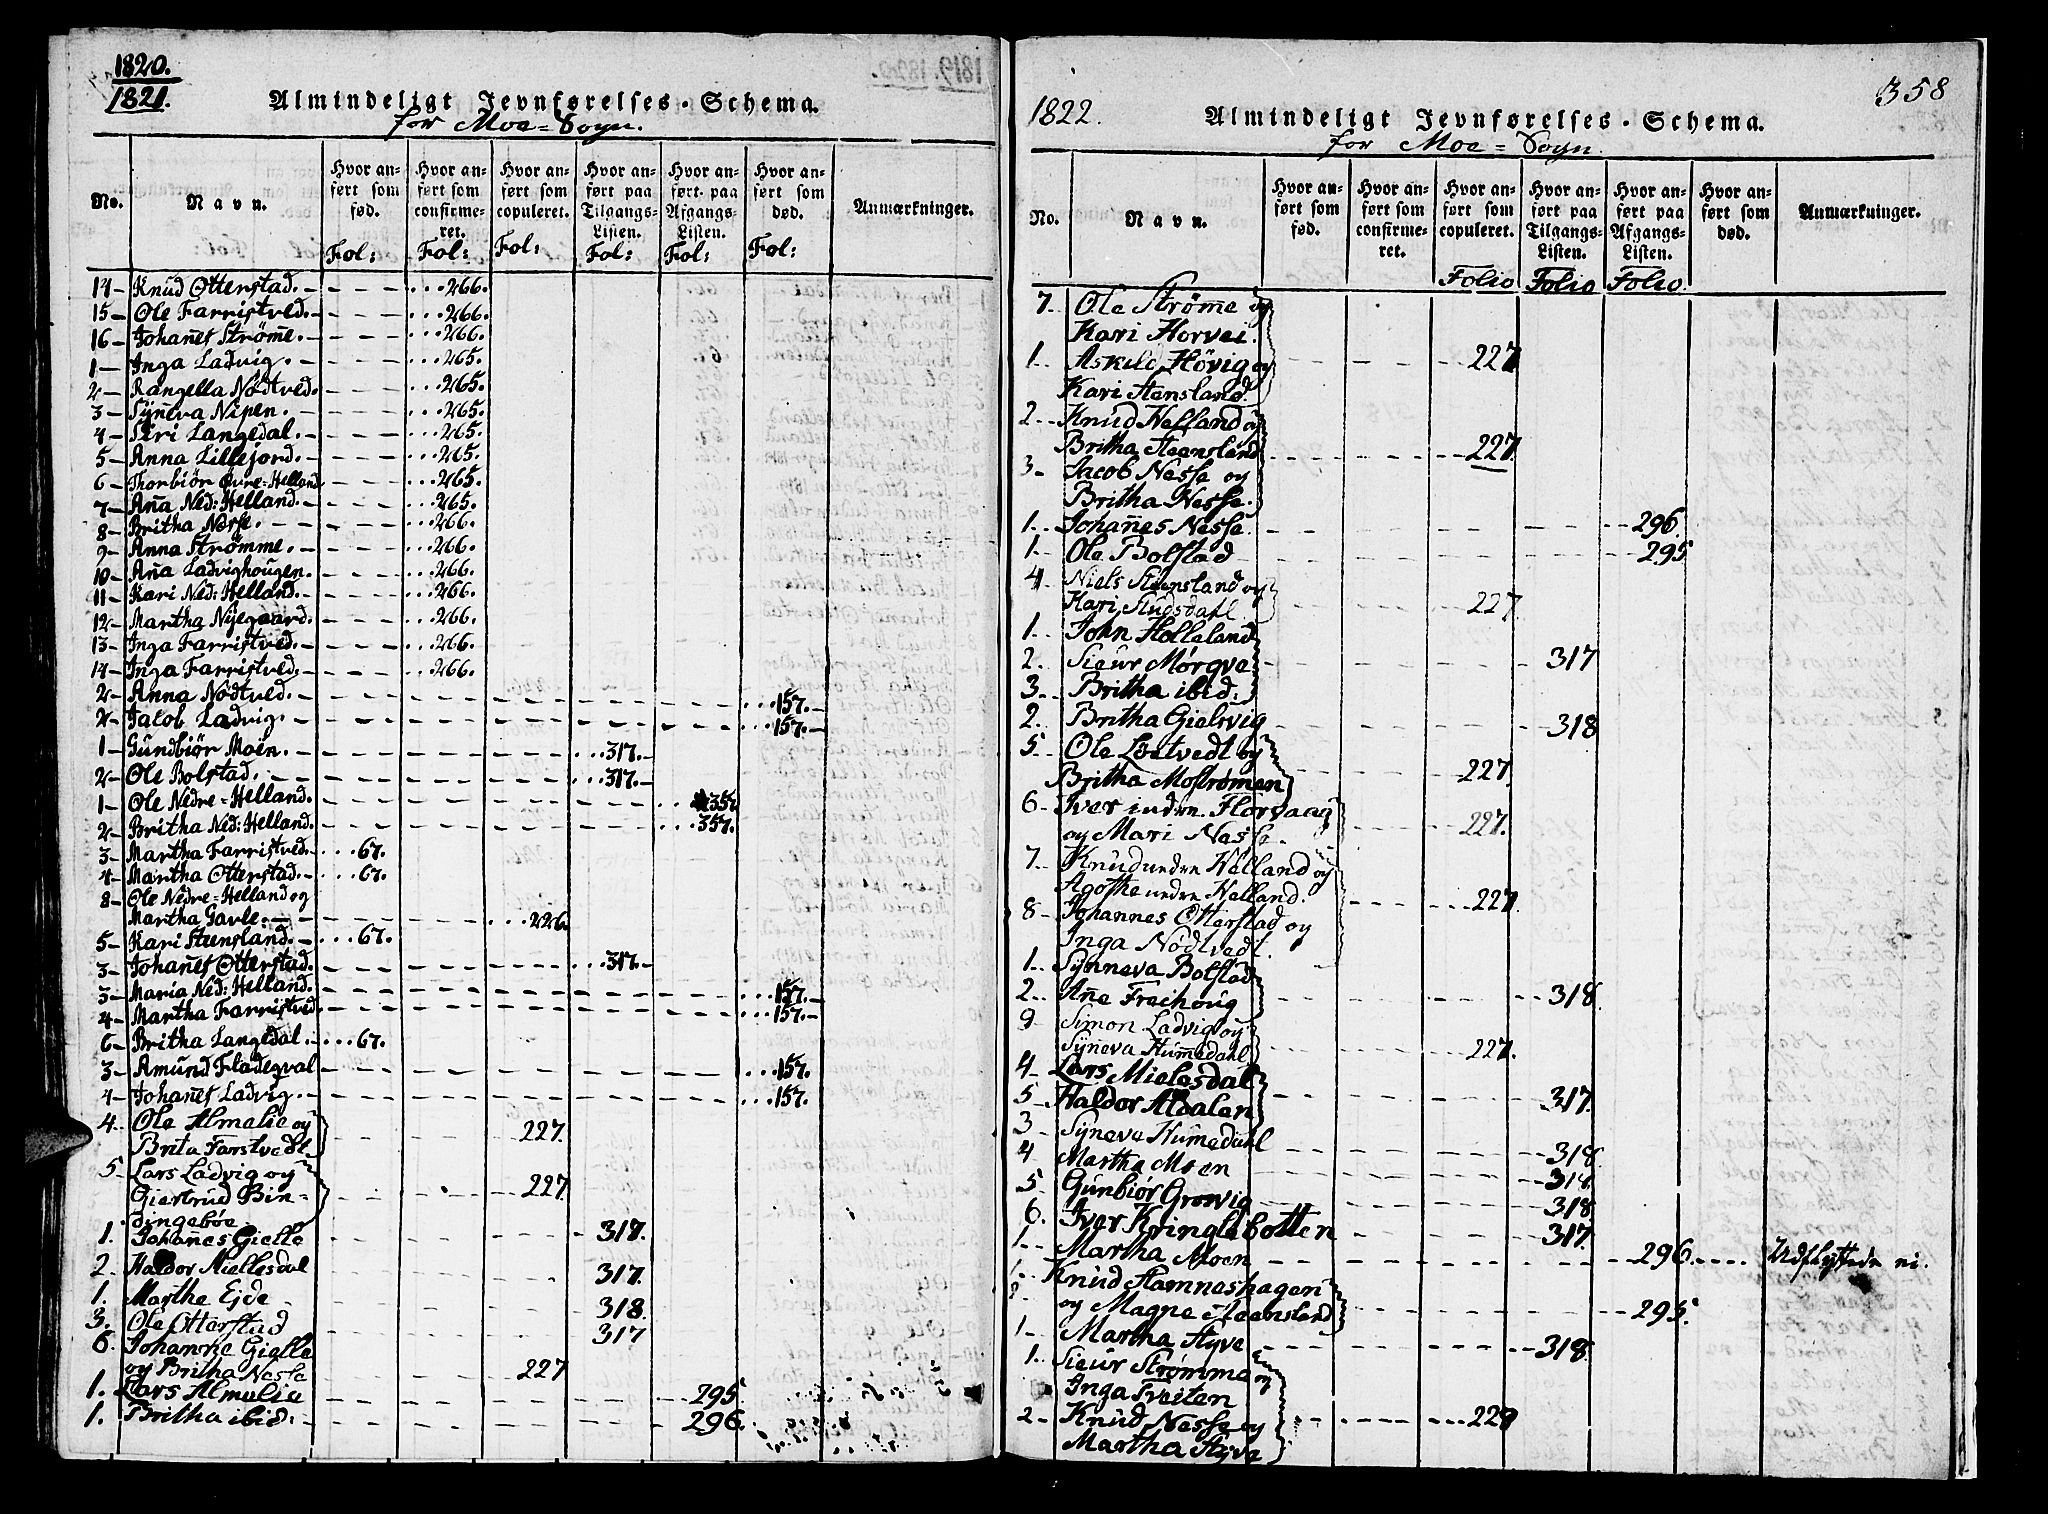 1820.
1821.
Almindeligt Jevnførelses-Schema.
for Moe=Sogn.
No.
Navn.
Hvor anført som fød.
Hvor anført som confirmeret.
Hvor anført som copuleret.
Hvor anført paa Tilgangs-Listen.
Hvor anført paa Afgangs-Listen.
Hvor anført som død.
Anmærkninger.
Fol: Fol: Fol: Fol: Fol: Fol:
14 - Knud Otterstad. - - - - ...266.
15 - Ole Farristved. - - - - ...266.
16 - Johañes Strøm̄e. - - - - ...266.
1 - Inga Ladvig. - - - - ...265.
2 - Rangella Nødtved. - - - - ...265.
3 - Syñeva Nipen. - - - - ...265.
4 - Siri Langedal. - - - - ...265.
5 - Anna Lillejord. - - - - ...265.
6 - Thorbiör Øvre=Helland - - - ...265.
7 - Aña Ned: Helland. - - - - ...265.
8 - Britha Nesse. - - - - ...266.
9 - Anna Strømme. - - - - ...266.
10 - Aña Ladvighougen. - - - - ...266.
11 - Kari Ned: Helland. - - - - ...266.
12 - Martha Nyegaard. - - - - ...266.
13 - Inga Farristved. - - - - ...266.
14 - Inga Farristved. - - - - ...266.
2 - Anna Nødtved. - - - - ...157. -
2 - Jacob Ladvig. - - - - ...157. -
1 - Gundbiör Moen. - - - - ...317. -
2 - Ole Bolstad. - - - - ...317. -
1 - Ole Nedre=Helland. - - - - ...357
2 - Britha Ned: Helland. - - - - ...357.
3 - Martha Farristved. - ...67.
4 - Martha Otterstad. - ...67.
8 - Ole Nedre=Helland og
Martha Gavle. - - - - ...226.
5 - Kari Steensland. - ...67.
3 - Johañes Otterstad. - - - - ...317. -
3 - Maria Ned: Helland. - - - - ...157. -
4 - Martha Farristved. - - - - ...157. -
6 - Britha Langedal. - ...67.
3 - Amund Fladeqval - - - - ...157.
4 - Johañes Ladvig. - - - - ...157.
4. Ole Almelie og
Brita Farstvedt. - - - - 227
5 Lars Ladvig og
Giertrud Bin=
dingebøe - - - - 227
1. Johañes Gielle - - - - 317.
2 Haldor Miellesdal - - - - 317.
1. Marthe Ejde - - - - 318.
3. Ole Otterstad - - - - 317
6. Johanne Gielle
og Britha Nesse - - - - 227
1. Lars Almelie - - - - 295.
1. Britha ibid: - - - - 296.
1822.
358
Almindeligt Jevnførelses-Schema.
for Moe=Sogn.
No.
Navn.
Hvor anført som fød.
Hvor anført som confirmeret.
Hvor anført som copuleret.
Hvor anført paa Tilgangs-Listen.
Hvor anført paa Afgangs-Listen.
Hvor anført som død.
Anmærkninger.
Folio Folio Folio.
7. Ole Strøm̄e og
Kari Horvei.
1. Askild Høvig og - - - - 227
Kari Stensland.
2. Knud Helland og
Britha Steensland - - - - 227
3- Jacob Nesse og
Britha Nesse.
1. Johañes Nesse. - - - - 296.
1. Ole Bolstad - - - - 295
4 Niels Steensland og
Kari Studsdahl - - - - 227.
1. John Holleland
2. Sieur Mørqve - - - - 317
3. Britha ibid:
2. Britha Gielsvig - - - - 318
5 Ole Loftvedt og
Britha Mostrømen - - - - 227.
6- Iver indre Florvaag
og Mari Nesse. - - - - 227.
7. Knud nedre Helland og
Agothe nedre Helland. - - - - 227.
8- Johannes Otterstad og
Inga Nødtvedt.
1. Synneva Bolstad
2. Añe Freihoug - - - - 318.
9 Simon Ladvig og
Syñeva Hum̄edahl - - - - 227.
4. Lars Mielesdal
5. Haldor Aldalen - - - - 317.
3. Syneva Humedahl - - - - 318.
4 Martha Moen - - - - 318.
5. Gunbiör Growig - - - - 318.
6. Iver Kringlebotten - - - - 317.
1. Martha Moen - - - - 296. .... Udflyttede ei.
1. Knud Hamneshagen
og Magne Steensland - - - - 295.
1- Martha Hyve - - - - 318.
1. Sieur Strømme og
Inga Freiten
2- Knud Nesse og - - - - 228
Martha Hyve